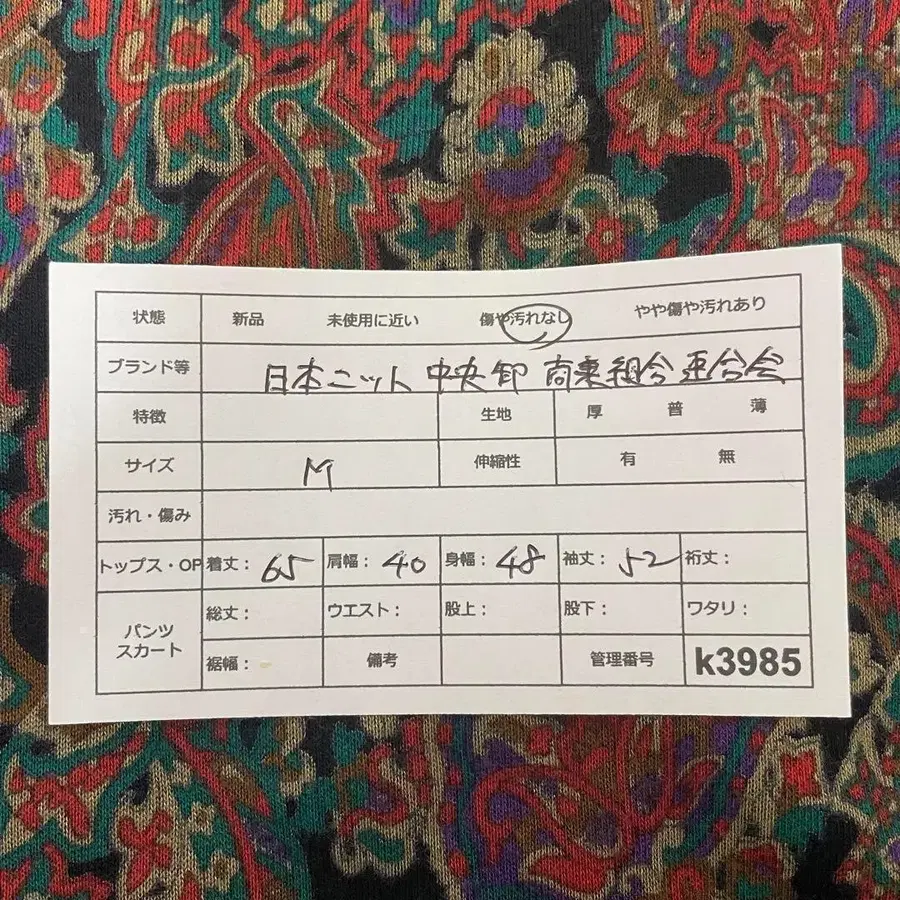 状態 新品 未使用に近い 傷や汚れなし やや傷や汚れあり
ブランド等 日本ニット中央卸商業組合連合会
特徴 生地 厚 普 薄
サイズ M 伸縮性 有 無
汚れ・傷み
トップス・OP 着丈: 65 肩幅: 40 身幅: 48 袖丈: 52 裄丈:
パンツ スカート 総丈: ウエスト: 股上: 股下: ワタリ:
裾幅: 備考 管理番号 k3985